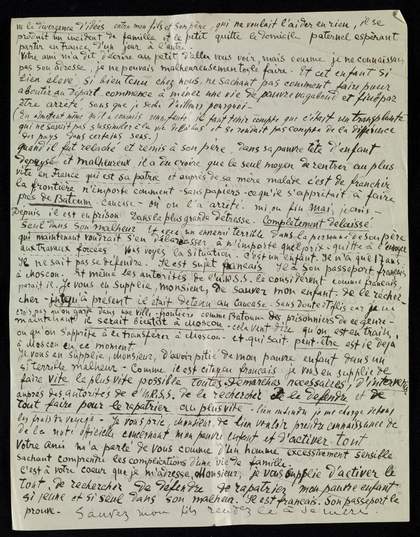 la divergence d'idées entre mon fils et son père, qui ne voulait l'aider en rien, il se
produit un incident de famille et le petit quitte le domicile paternel espérant
partir en France d'un jour à l'autre.
Votre ami m'a dit d'écrire au petit d'aller vous voir, mais comme je ne connaissais
pas son adresse, je ne pouvais malheureusement le faire. Et cet enfant si
bien élevé si bien tenu chez nous ne sachant pas comment faire pour
aboutir au départ commence à mener une vie de pauvre vagabond et finit par
être arrêté sans que je sache d'ailleurs pourquoi
(En admettant même qu'il a commis une faute il faut tenir compte que c'était un transplanté
qui ne savait pas s'assimiler à la vie de là-bas et se rendait pas compte de la différence
des pays dans certains sens.)
quand il fut relâché et remis à son père, dans sa pauvre tête d'enfant
dépaysé et malheureux il a dû croire que le seul moyen de rentrer au plus
vite en France qui est sa patrie et auprès de sa mère malade c'est de franchir
la frontière n'importe comment sans papiers ce qu'il s'apprêtait à faire
près de Batoum Caucase où on l'a arrêté mi ou fin Mai, je crois
Depuis il est en prison dans la plus grande détresse. Complètement délaissé
Seul dans son malheur. Et avec un ennemi terrible dans la personne de son père
qui maintenant voudrait s'en débarrasser à n'importe quel prix quitte à l'envoyer
aux travaux forcés. Vous voyez la situation. C'est un enfant. Il n'a que 17 ans
Il ne sait pas se défendre. Il est sujet français. Il a son passeport français
à Moscou. Et même les autorités de l'U.R.S.S. le considèrent comme français
paraît-il. Je vous en supplie, monsieur, de sauver mon enfant. De le rechercher
jusqu'à présent il était détenu au Caucase. Sans doute à Tiflis car je ne
crois pas qu'on garde dans une ville frontière comme Batoum des prisonniers de ce genre
maintenant il serait bientôt à Moscou cela veut dire qu'on est en train
ou qu'on s'apprête à le transférer à Moscou et qui sait peut-être est il déjà
à Moscou en ce moment.
Je vous en supplie, monsieur, d'avoir pitié de mon pauvre enfant dans un
si terrible malheur. Comme il est citoyen français je vous en supplie de
faire vite le plus vite possible toutes démarches nécessaires, d'intervenir
auprès des autorités de l'U.R.S.S. de le rechercher de le défendre et de
tout faire pour le rapatrier au plus vite. bien entendu je me charge de tous
les frais de voyage. Je vous prie, monsieur de bien vouloir prendre connaissance de
de la note officielle concernant mon pauvre enfant et d'activer tout
Votre ami m'a parlé de vous comme d'un homme excessivement sensible
sachant comprendre les complications d'une vie de famille.
C'est à votre coeur que je m'adresse, monsieur, je vous supplie d'activer le
tout, de rechercher de défendre de rapatrier mon pauvre enfant
si jeune et si seul dans son malheur. Il est français. Son passeport le
prouve. Sauvez mon fils rendez le à sa mère.